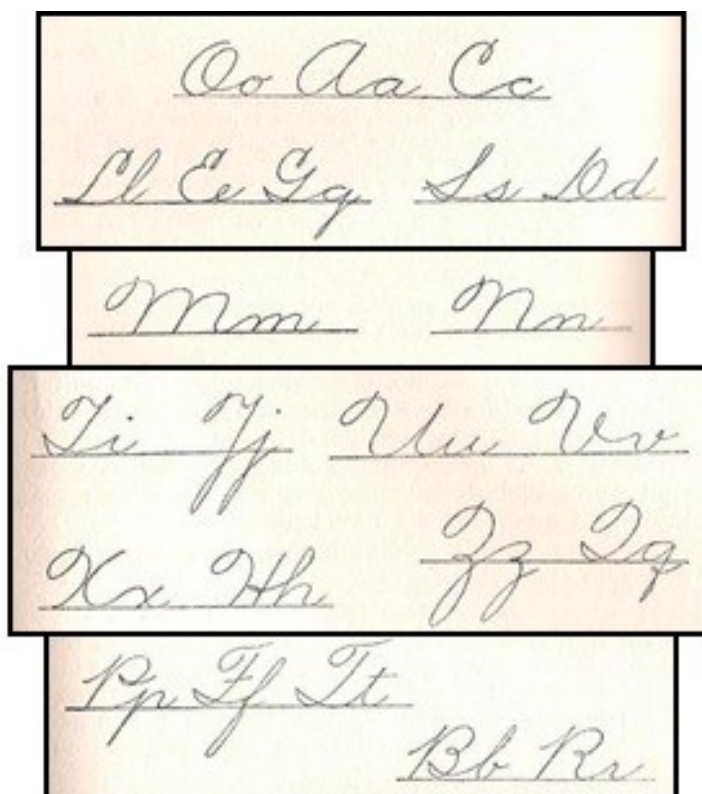 Oo Aa Cc
Ll Ee Gg Ss Dd
Mm Nn
Ii Jj Uu Vv
Zz Qq
Xx Hh
Pp Ff Tt
Bb Rr